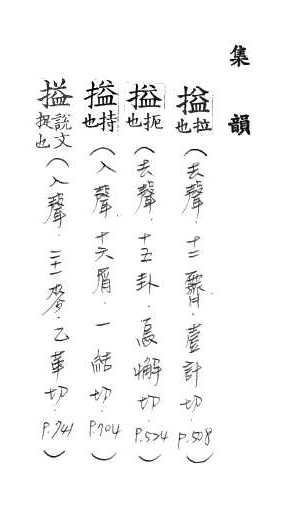 集韻
搤拉也(去聲.十二霽.壹計切.P.508)
搤扼也(去聲.十五卦.烏懈切.P.524)
搤持也(入聲.十六屑.一結切.P.704)
搤說文捉也(入聲.二十一麥.乙革切.P.741)